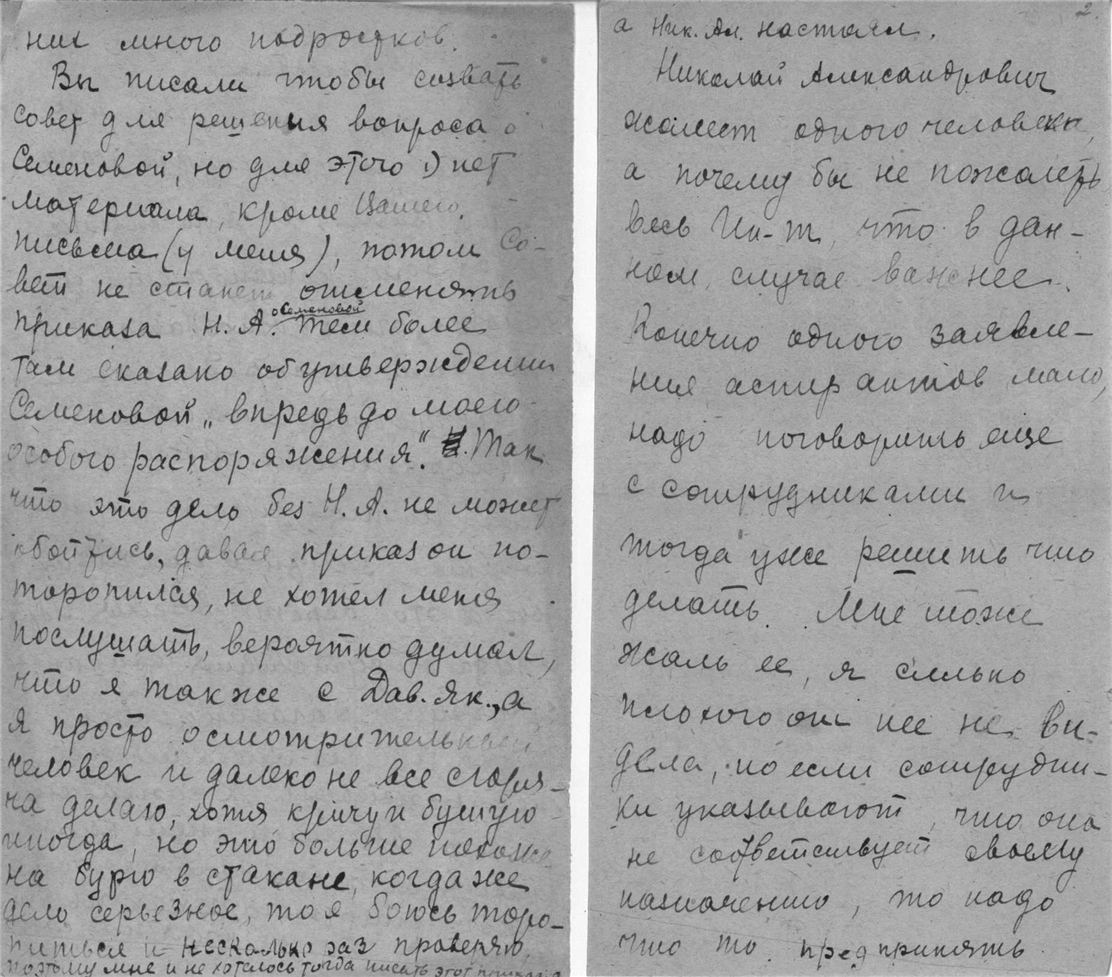 них много подростков.
Вы писали чтобы созвать
совет для решения вопроса о
Семеновой, но для этого 1) нет
материала, кроме Вашего
письма (у меня), потом Со-
вет не станет отменять
приказа Н. А. о Семеновой тем более
там сказано об утверждении
Семеновой „впредь до моего
особого распоряжения". Так
что это дело без Н. А. не может
обойтись, давая приказ он по-
торопился, не хотел меня
послушать, вероятно думал,
что я также с Дав. Як., а
я просто осмотрительный
человек и далеко не все сгоря-
ча делаю, хотя кричу и бушую
иногда, но это больше похоже
на бурю в стакане, когда же
дело серьезное, то я боюсь торо-
питься и несколько раз проверяю,
поэтому мне и не хотелось тогда писать этот приказ, а
2.
а Ник. Ал. настоял.
Николай Александрович
жалеет одного человека,
а почему бы не пожалеть
весь Ин-т, что в дан-
ном случае важнее.
Конечно одного заявле-
ния аспирантов мало,
надо поговорить еще
с сотрудниками и
тогда уже решить что
делать. Мне тоже
жаль ее, я сильно
плохого от нее не ви-
дела, но если сотрудни-
ки указывают, что она
не соответствует своему
назначению, то надо
что то предпринять.